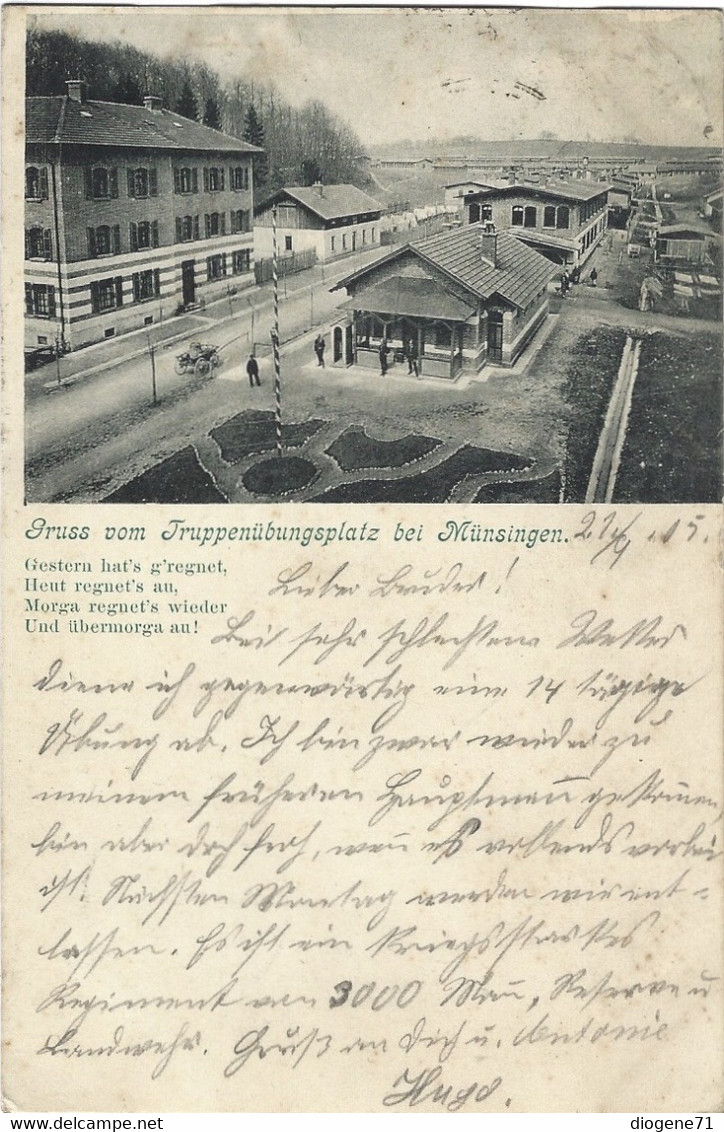 Gruss vom Truppenübungsplatz bei Münsingen. 21/4 .05.
Gestern hat's g'regnet,
Heut regnet's au,
Morga regnet's wieder
Und übermorga au!
Lieber Bruder!
Bei sehr schlechtem Wetter
diene ich gegenwärtig eine 14 tägige
Übung ab. Ich bin zwar wieder zu
meinem früheren Hauptmann gekommen,
bin aber doch froh, wenn es vollends vorbei
ist. Nächsten Montag werden wir ent-
lassen. Es ist ein kriegsstarkes
Regiment von 3000 Mann, Reserve u
Landwehr. Gruß an Dich u. Antonie
Hugo.
diogene71